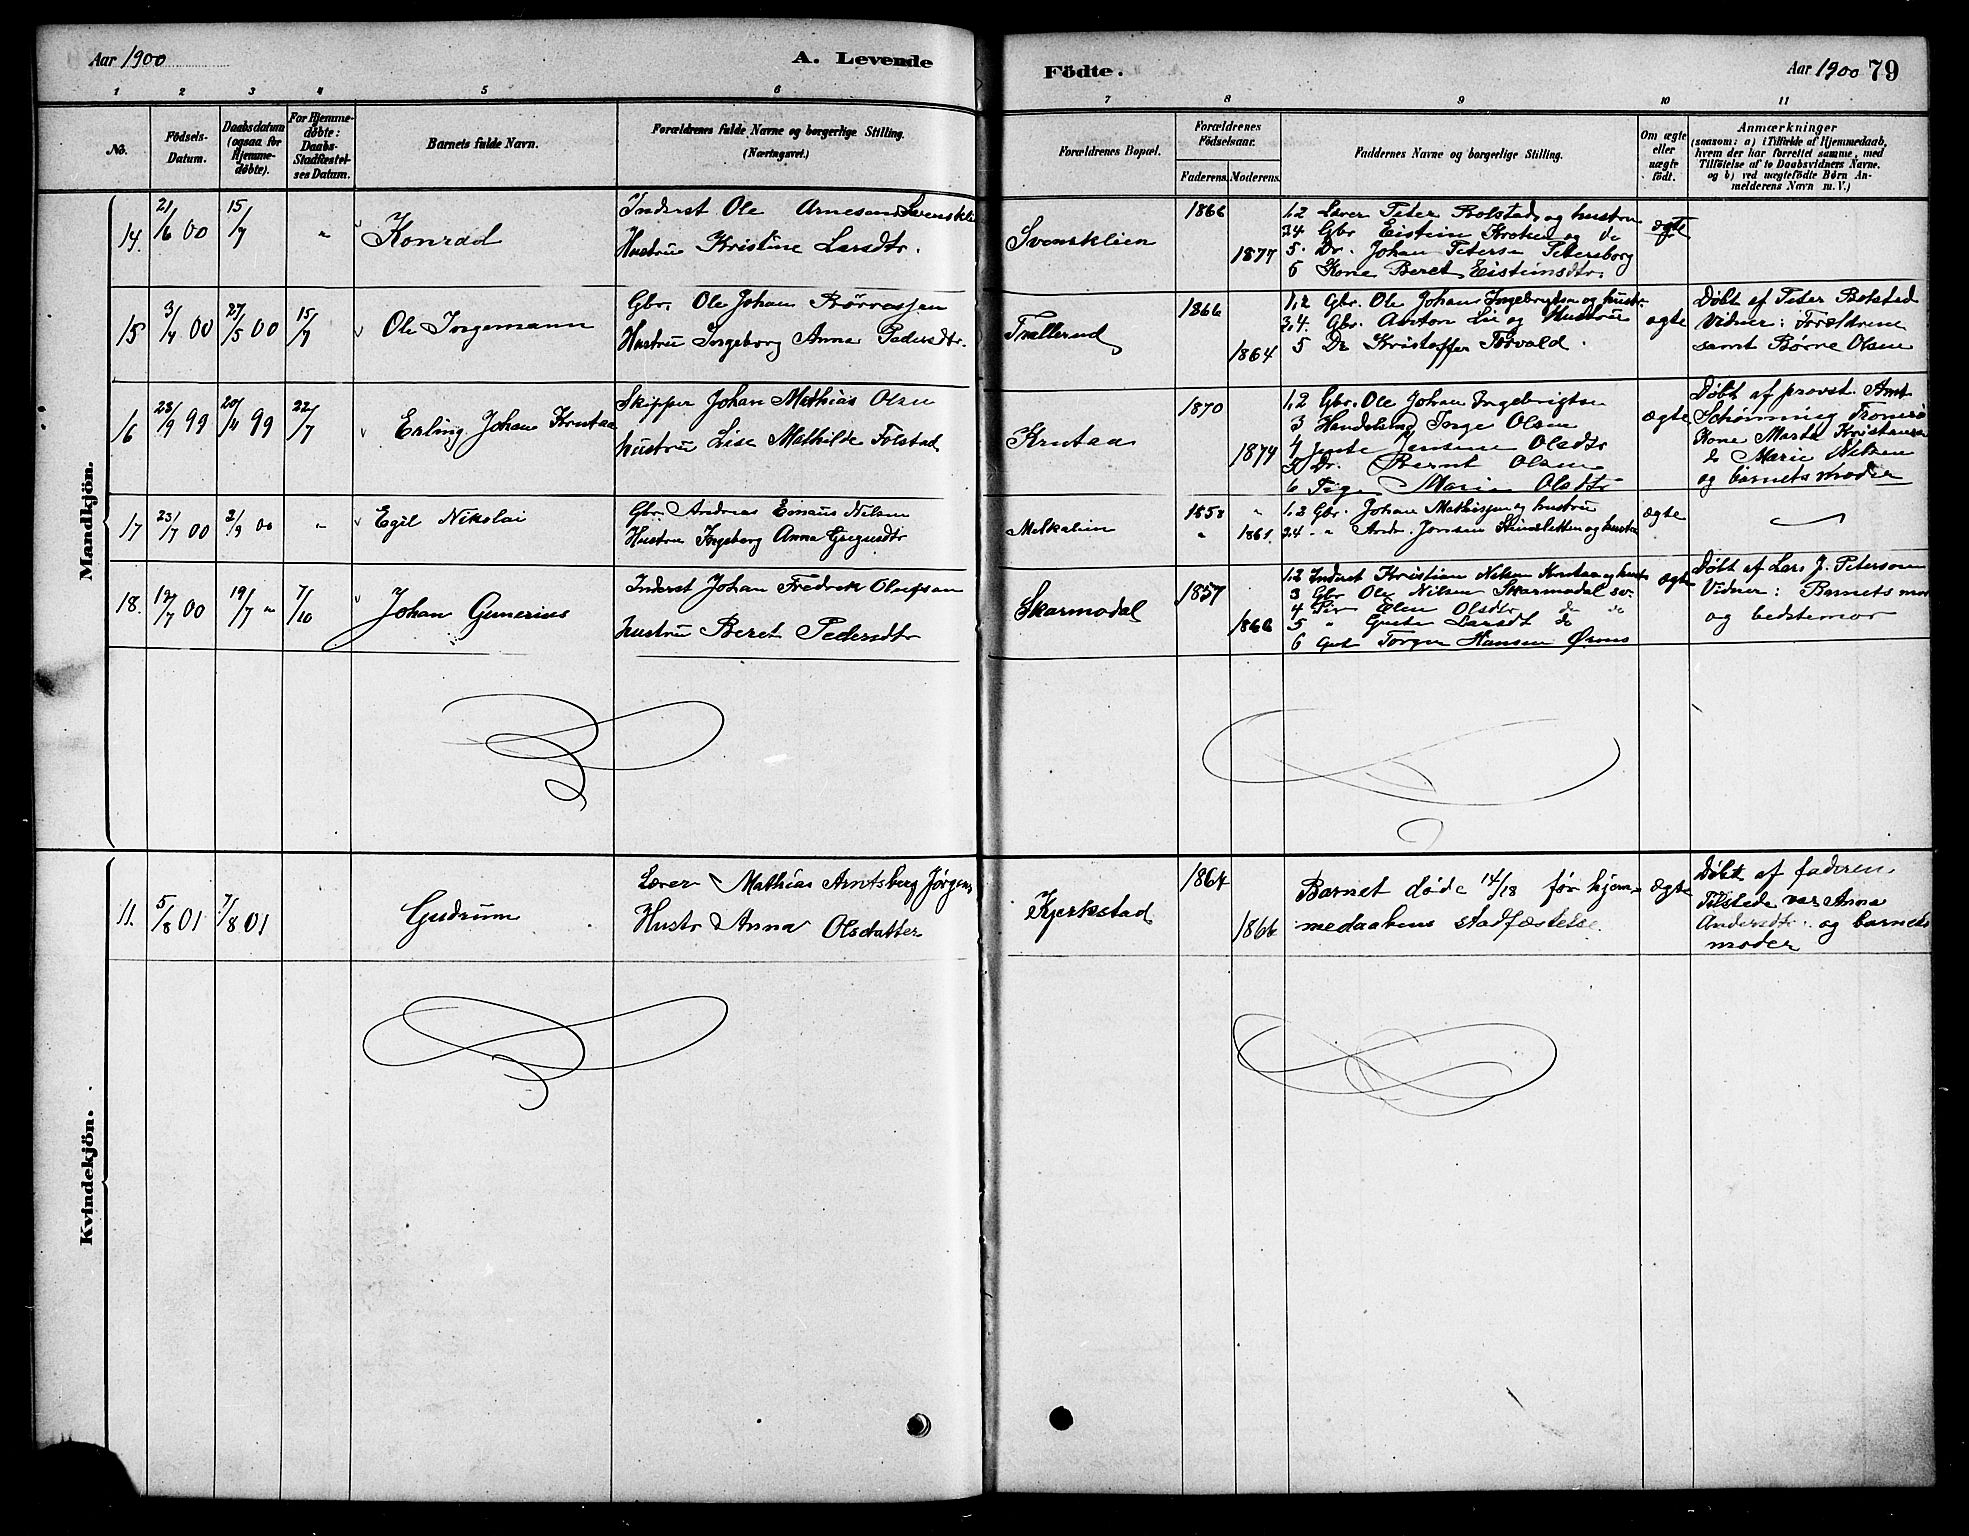 Aar 1900
A. Levende
1 2 3 4 5 6
No.
Födsels-Datum.
Daabsdatum (ogsaa for Hjemme-døbte).
For Hjemme-døbte: Daabs-Stadfæstel-ses Datum.
Barnets fulde Navn.
Forældrenes fulde Navne og borgerlige Stilling.
(Næringsvei.)
Mandkjön.
14. 21/6 00 15/7 " Konrad
Inderst Ole Arnesen Svensklien
Hustru Kristine Larsdtr.
15 3/4 00 27/5 00 15/7 Ole Ingemann
Gbr. Ole Johan Børresen
Hustru Ingeborg Anna Pedersdtr.
16 23/9 99 20/4 99 22/7 Erling Johan Krutaa
Skipper Johan Mathias Olsen
hustru Lise Mathilde Tolstad
17 23/7 00 2/9 00 " Egil Nikolai
Gbr. Andreas Nilsen
Hustru Ingeborg Anna
18. 12/7 00 19/7 " 7/10 Johan Gunerius
Inderst Johan Fredrek Olufsen
hustru Beret Pedersdtr
Kvindekjön.
11. 5/8 01 7/8 01 Gudrun
Lærer Mathias Arntsberg Jørgens
Hustr Anna Olsdatter
Födte.
Aar 1900 79
7 8 9 10 11
Forældrenes Bopæl.
Forældrenes Födselsaar.
Faderens. Moderens.
Faddernes Navne og borgerlige Stilling.
Om ægte eller uægte födt.
Anmærkninger
(saasom: a) i Tilfælde af Hjemmedaab,
hvem der har forrettet samme, med
Tilföielse af to Daabsvidners Navne,
og b) ved uægtefödte Börn An-
melderens Navn m. V.)
Svensklien 1866 1877
1,2 Lærer Peter Bolstad og hustru
3.4 Gbr Eistein og do
5. Dr. Johan Peterborg
6 Kone Beret Eisteinsdtr.
ægte
Trællerud 1866 1864
1,2 Gbr. Ole Johan Ingebrigtsen og hustr.
3,4. Gbr. Anton Lie og Hustru
5 Dr Kristoffer Torvald.
ægte
Døbt af Peter Bolstad
Vidner: Forældrene
samt Børre Olsen
Krutaa 1870 1874
1,2 Gbr. Ole Johan Ingebrigtsen
3 Handelsmd Olsen
4 Jente Jensine Olsdtr
5 Dr. Bernt Olsen
6 Pige Marie Olsdtr
ægte
Døbt af provst
Schønning Tromsø
Kone Marta Kristiansen
do Marie Nilsen
og barnets moder
1858 1861.
1,2 Gbr. Johan Mathisen og hustru
3.4 " Andr. Jonsen og hustru
ægte
Skarmodal 1857 1866
1,2 Inderst Kristian Nilsen Krutaa og hustr
3 Gbr Ole Nilsen Skarmodal
4 Pir Elen Olsdtr do do
5 " Larsdt do
6 Gut Torger Hansen
ægte
Døbt af Lars J. Peterson
Vidner: Barnets mor
og bedstemor
Kjerkstad 1864 1866
Barnet døde 14/18 før hjem-
medaabens stadfæstelse.
ægte
Døbt af faderen.
Tilstede var Anna
Andersdtr. og barnets
moder